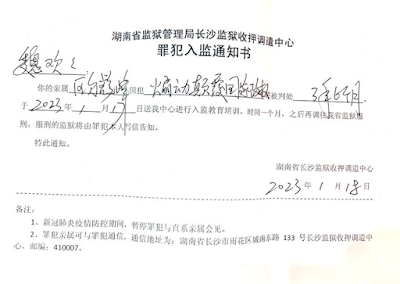 湖南省监狱管理局长沙监狱收押调遣中心
罪犯入监通知书
魏欢欢:
你的亲属 因犯 煽动颠覆国家政权 被判处 3年6个月
于 2023 年 1 月 日送我中心进行入监教育培训,时间一个月,之后再调往我省监狱服
刑,服刑的监狱将由罪犯本人写信告知。
特此通知。
湖南省长沙监狱收押调遣中心
2023 年 1 月 18 日
备注:
1、新冠肺炎疫情防控期间,暂停罪犯与直系亲属会见。
2、罪犯亲属可与罪犯通信,通信地址为:湖南省长沙市雨花区城南东路 133 号长沙监狱收押调遣中
心,邮编:410007。